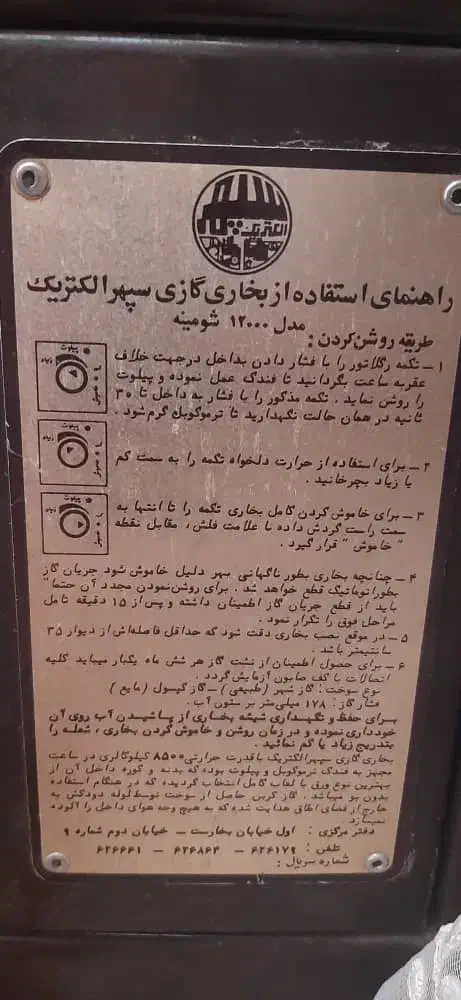 سپهر
الکتریک
راهنمای استفاده از بخاری گازی سپهر الکتریک
مدل ۱۲۰۰۰ شومینه
طریقه روشن کردن :
۱ – تکمه رگلاتور را با فشار دادن بداخل درجهت خلاف
عقربه ساعت بگردانید تا فندک عمل نموده و پیلوت
را روشن نماید . تکمه مذکور را با فشار به داخل تا ۳۰
ثانیه در همان حالت نگهدارید تا ترموکوپل گرم شود .
پیلوت
زیاد
کم
خاموش
۲ – برای استفاده از حرارت دلخواه تکمه را به سمت کم
یا زیاد بچرخانید .
پیلوت
زیاد
کم
خاموش
۳ – برای خاموش کردن کامل بخاری تکمه را تا انتها به
سمت راست گردش داده تا علامت فلش ، مقابل نقطه
" خاموش " قرار گیرد .
پیلوت
زیاد
کم
خاموش
۴ – چنانچه بخاری بطور ناگهانی بهر دلیل خاموش شود جریان گاز
بطور اتوماتیک قطع خواهد شد . برای روشن نمودن مجدد آن حتما"
باید از قطع جریان گاز اطمینان داشته و پس از ۱۵ دقیقه تامل
مراحل فوق را تکرار نمود .
۵ – در موقع نصب بخاری دقت شود که حداقل فاصله‌اش از دیوار ۳۵
سانتیمتر باشد .
۶ – برای حصول اطمینان از نشت گاز هر شش ماه یکبار میباید کلیه
اتصالات با کف صابون آزمایش گردد .
نوع سوخت : گاز شهر ( طبیعی ) – گاز کپسول ( مایع )
فشار گاز : ۱۷۸ میلی‌متر بر ستون آب .
بـرای حفظ و نگهـداری شیشه بخـاری از پـاشیـدن آب روی آن
خودداری نموده و در زمان روشن و خاموش کردن بخاری ، شعله را
بتدریج زیاد یا کم نمائید .
بخاری گازی سپهرالکتریک با قدرت حرارتی ۸۵۰۰ کیلوکالری در ساعت
مجهز به فندک ترموکوپل و پیلوت بوده که بدنه و کوره داخل آن از
بهترین نوع ورق با لعاب کامل انتخاب گردیده که در هنگام استفاده
بدون بو میباشد . گاز کربن حاصل از سوخت توسط لوله دودکش به
خارج از فضای اطاق هدایت شده که به هیچ وجه هوای داخل را آلوده
نمیسازد .
دفتر مرکزی : اول خیابان بخارست – خیابان دوم شماره ۹
تلفن : ۶۲۶۱۷۹ – ۶۲۶۸۶۴ – ۶۲۶۶۶۱
شماره سریال :